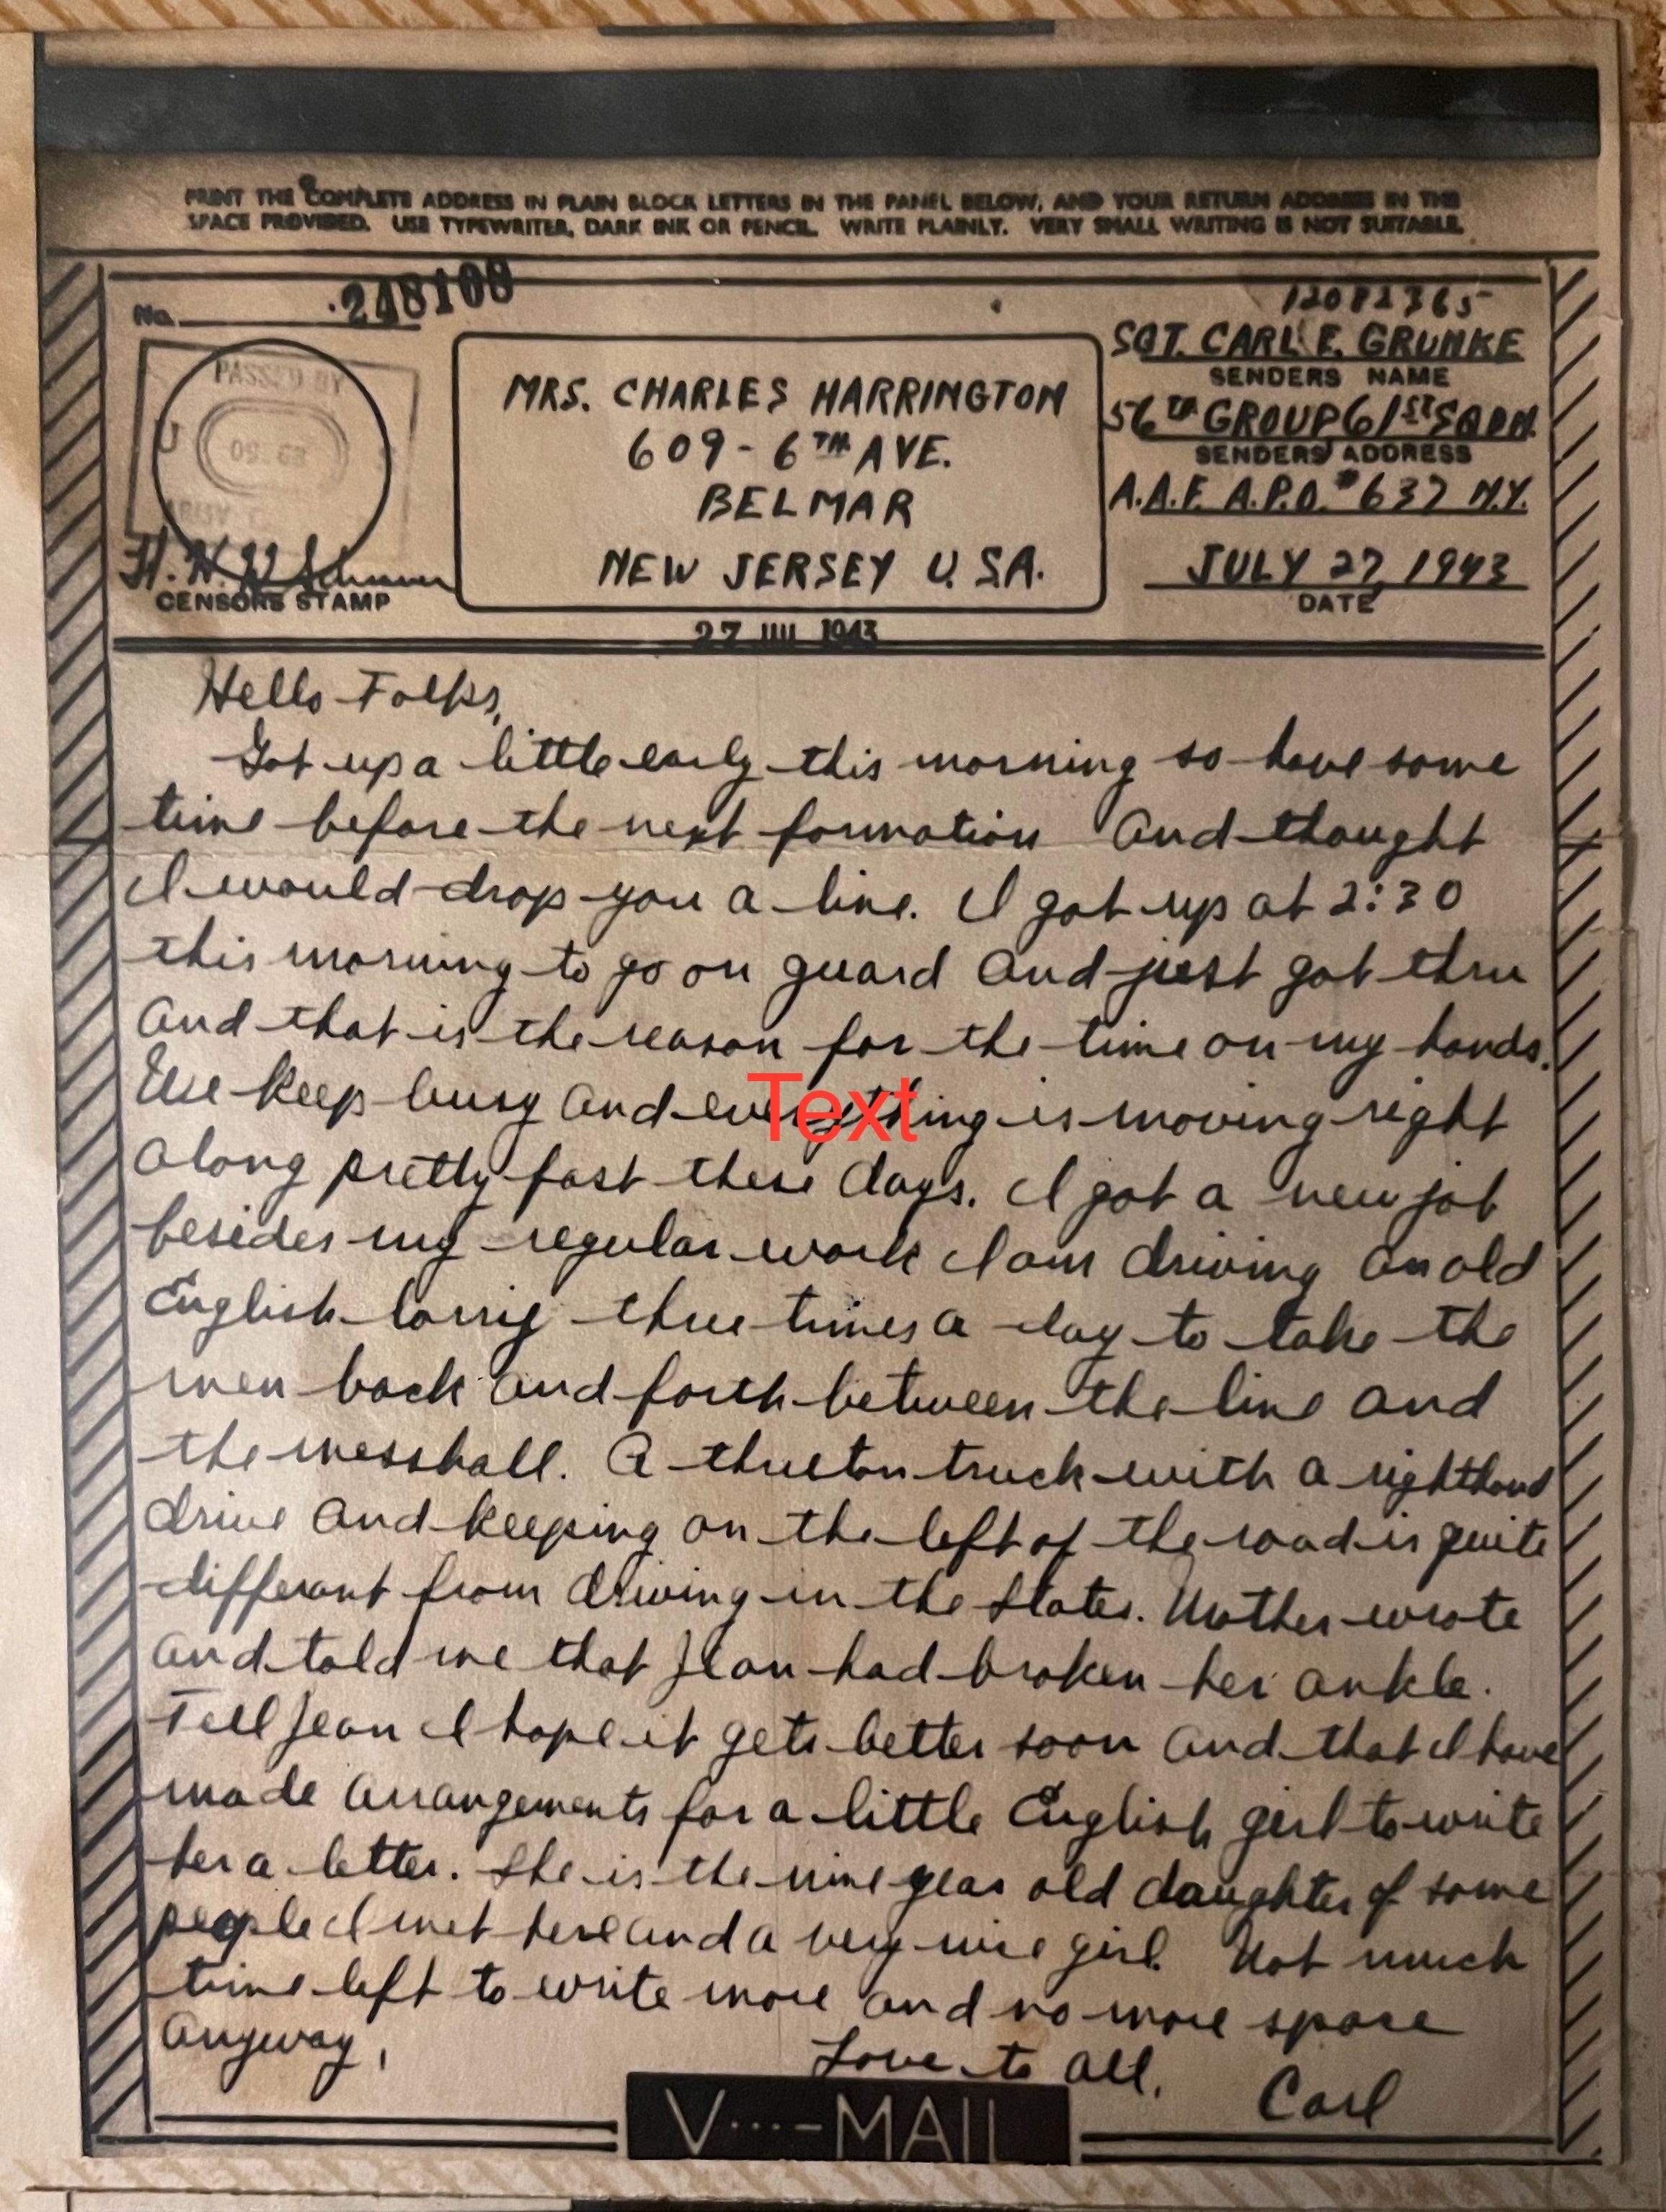 PRINT THE COMPLETE ADDRESS IN PLAIN BLOCK LETTERS IN THE PANEL BELOW, AND YOUR RETURN ADDRESS IN THE
SPACE PROVIDED. USE TYPEWRITER, DARK INK OR PENCIL. WRITE PLAINLY. VERY SMALL WRITING IS NOT SUITABLE.
No. 248108
PASSED BY
U S
ARMY
CENSORS STAMP
MRS. CHARLES HARRINGTON
609-6TH AVE.
BELMAR
NEW JERSEY U.S.A.
12082365
SGT. CARL E. GRUNKE
SENDERS NAME
56TH GROUP 61ST SQDN.
SENDERS ADDRESS
A.A.F. A.P.O. #637 N.Y.
JULY 27, 1943
DATE
27 JUL 1943
Hello Folks,
Got up a little early this morning so have some
time before the next formation And thought
I would drop you a line. I got up at 2:30
this morning to go on guard And just got thru
And that is the reason for the time on my hands.
We keep busy And everything is moving right
Along pretty fast these days. I got a new job
besides my regular work I am driving an old
English lorry three times a day to take the
men back And forth between the line and
the messhall. A threeton truck with a righthand
drive And keeping on the left of the road is quite
different from driving in the States. Mother wrote
And told me that Jean had broken her ankle.
Tell Jean I hope it gets better soon And that I have
made arrangements for a little English girl to write
her a letter. She is the nine year old daughter of some
people I met here and a very nice girl. Not much
time left to write more and no more space
Anyway,
Love to All,
Carl
V···-MAIL
Text